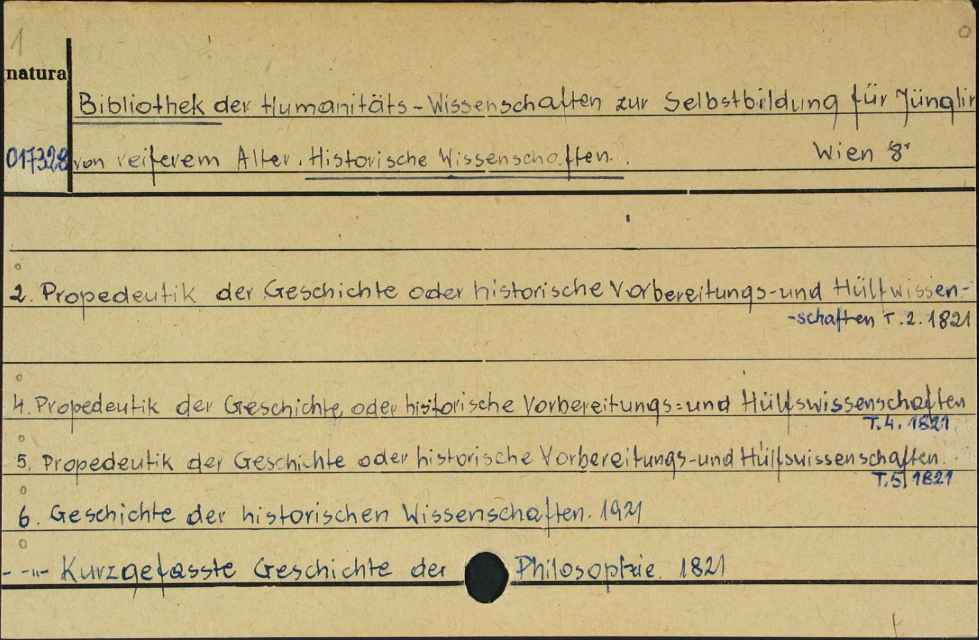 1
natura
Bibliothek der Humanitäts-Wissenschaften zur Selbstbildung für Jünglin
017328 von reiferem Alter. Historische Wissenschaften. Wien 8°
2. Propedeutik der Geschichte oder historische Vorbereitungs-und Hülfwissen-
-schaften T.2. 1821
4. Propedeutik der Geschichte oder historische Vorbereitungs=und Hülfswissenschaften
T.4. 1821
5. Propedeutik der Geschichte oder historische Vorbereitungs-und Hülfswissenschaften
T.5. 1821
6. Geschichte der historischen Wissenschaften. 1921
- -"- Kurzgefasste Geschichte der Philosophie. 1821